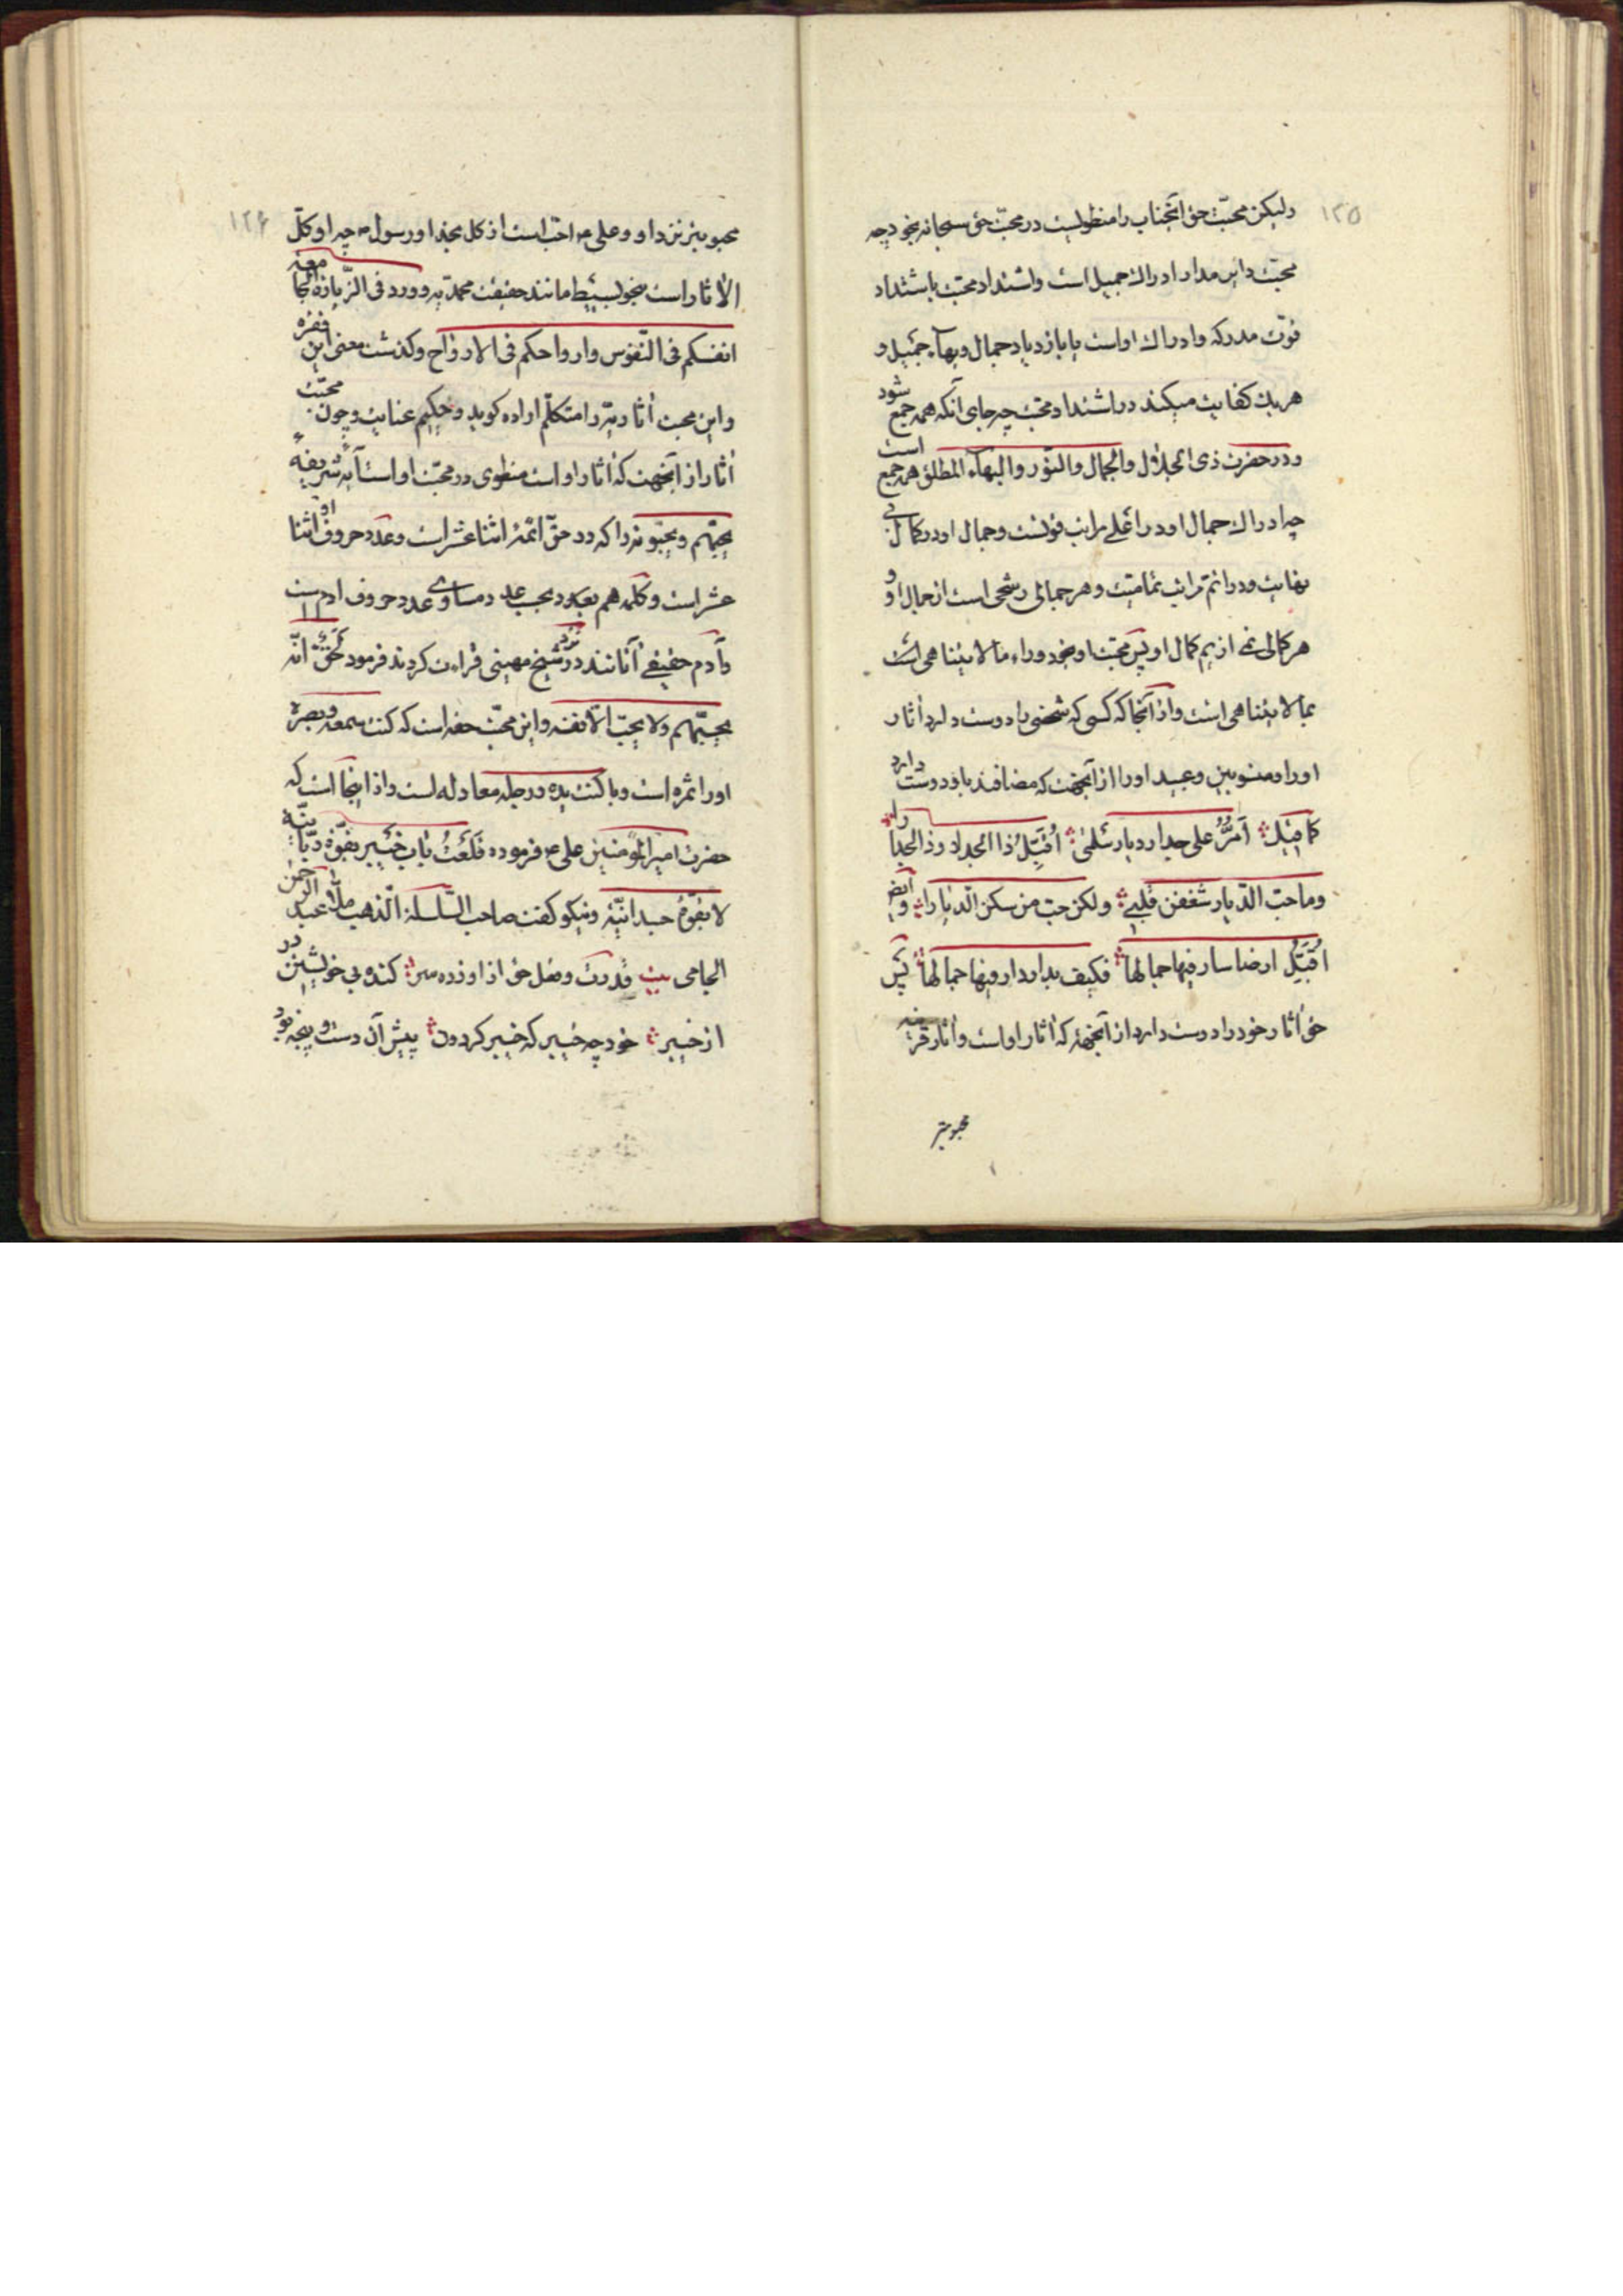 ١٢٥
ولیکن محبّت حق آنجناب را منطویست در محبّت حق سبحانه بخود چه
محبّت دایر مدار ادراك جمیل است و اشتداد محبّت باشتداد
قوّت مدرکه و ادراك او است یا بازدیاد جمال و بهآء جمیل و
هریك کفایت میکند در اشتداد محبّت چه جای آنکه همه جمع شود
و در حضرت ذی الجلال والجمال والنّور والبهآء المطلق همه جمع است
چه ادراك جمال او در اعلی مراتب قوّتست و جمال او در کمال بی
نهایت و در اتم مراتب تمامیّت و هر جمالی رشحی است از جمال او و
هر کمالی نمی از یم کمال او پس محبّت او بخود وراء ما لا یتناهی است
بما لا یتناهی است و از آنجا که کسی که شخصی را دوست دارد آثار
او را و منسوبین و عبید او را از آنجهت که مضافند باو دوست دارد
کما قیل أمرُّ علی جدار دیار سلمی أُقَبِّلُ ذا الجدار و ذا الجدارا
وما حبّ الدّیار شغفن قلبی ولکن حبّ من سکن الدّیارا و ایض
أُقَبِّلُ ارضا سار فیها جمالها فکیف بدار دار فیها جمالها پس
حق آثار خود را دوست دارد از آنجهة که آثار او است و آثار
محبوبتر
١٢۶
محبوبتر نزد او و علی ع احبّ است از کل بخدا و رسول ص چه او کلّ
الآثار است بنحو بسیط مانند حقیقت محمدّیه و ورد فی الزّیارة الجامعة
انفسکم فی النّفوس و ارواحکم فی الارواح و کذشت معنی این فقره
و این محبت آثاریّه را متکلّم اراده کوید و حکیم عنایت و چون محبّت
آثار از آنجهت که آثار او است منطوی در محبّت او است آیهٔ شریفهٔ
یحبّهم و یحبّونه را که در حقّ ائمّهٔ اثنا عشر است و عدد حروف او اثنا
عشر است و کلمه هم بعدد بحسب عدد مساوی عدد حروف ادم است
و آدم حقیقی آنانند در نزد شیخ مهینی قراءت کردند فرمود لحقّ انّه
یحبّهم و لا یحبّ الّا نفسه و این محبّت حقه است که کنت سمعه و بصره
او را ثمره است و با کنت یده و رجله معادله است و از اینجا است که
حضرت امیر المؤمنین علی ع فرموده قلعتُ باب خیبر بقوّة ربّانیّة
لا بقوّة جسدانیّة و نیکو کفت صاحب السّلسلة الذّهب ملّا عبد الرّحمن
الجامی بیت قدرت و فعل حق از او زده سر کنده بی خویشتن در
از خیبر خود چه خیبر که خیبر کردون پیش آن دست و پنجه بود